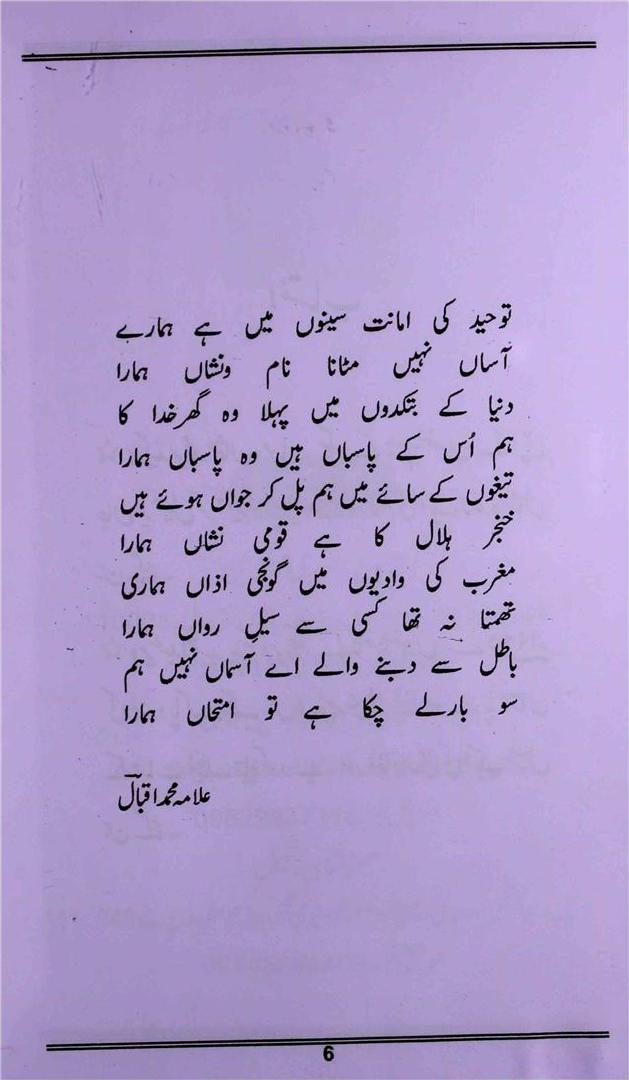 توحید کی امانت سینوں میں ہے ہمارے
آساں نہیں مٹانا نام ونشاں ہمارا
دنیا کے بتکدوں میں پہلا وہ گھر خدا کا
ہم اُس کے پاسباں ہیں وہ پاسباں ہمارا
تیغوں کے سائے میں ہم پل کر جواں ہوئے ہیں
خنجر ہلال کا ہے قومی نشاں ہمارا
مغرب کی وادیوں میں گونجی اذاں ہماری
تھمتا نہ تھا کسی سے سیلِ رواں ہمارا
باطل سے دبنے والے اے آسماں نہیں ہم
سو بار لے چکا ہے تو امتحاں ہمارا
علامہ محمد اقبالؒ
6